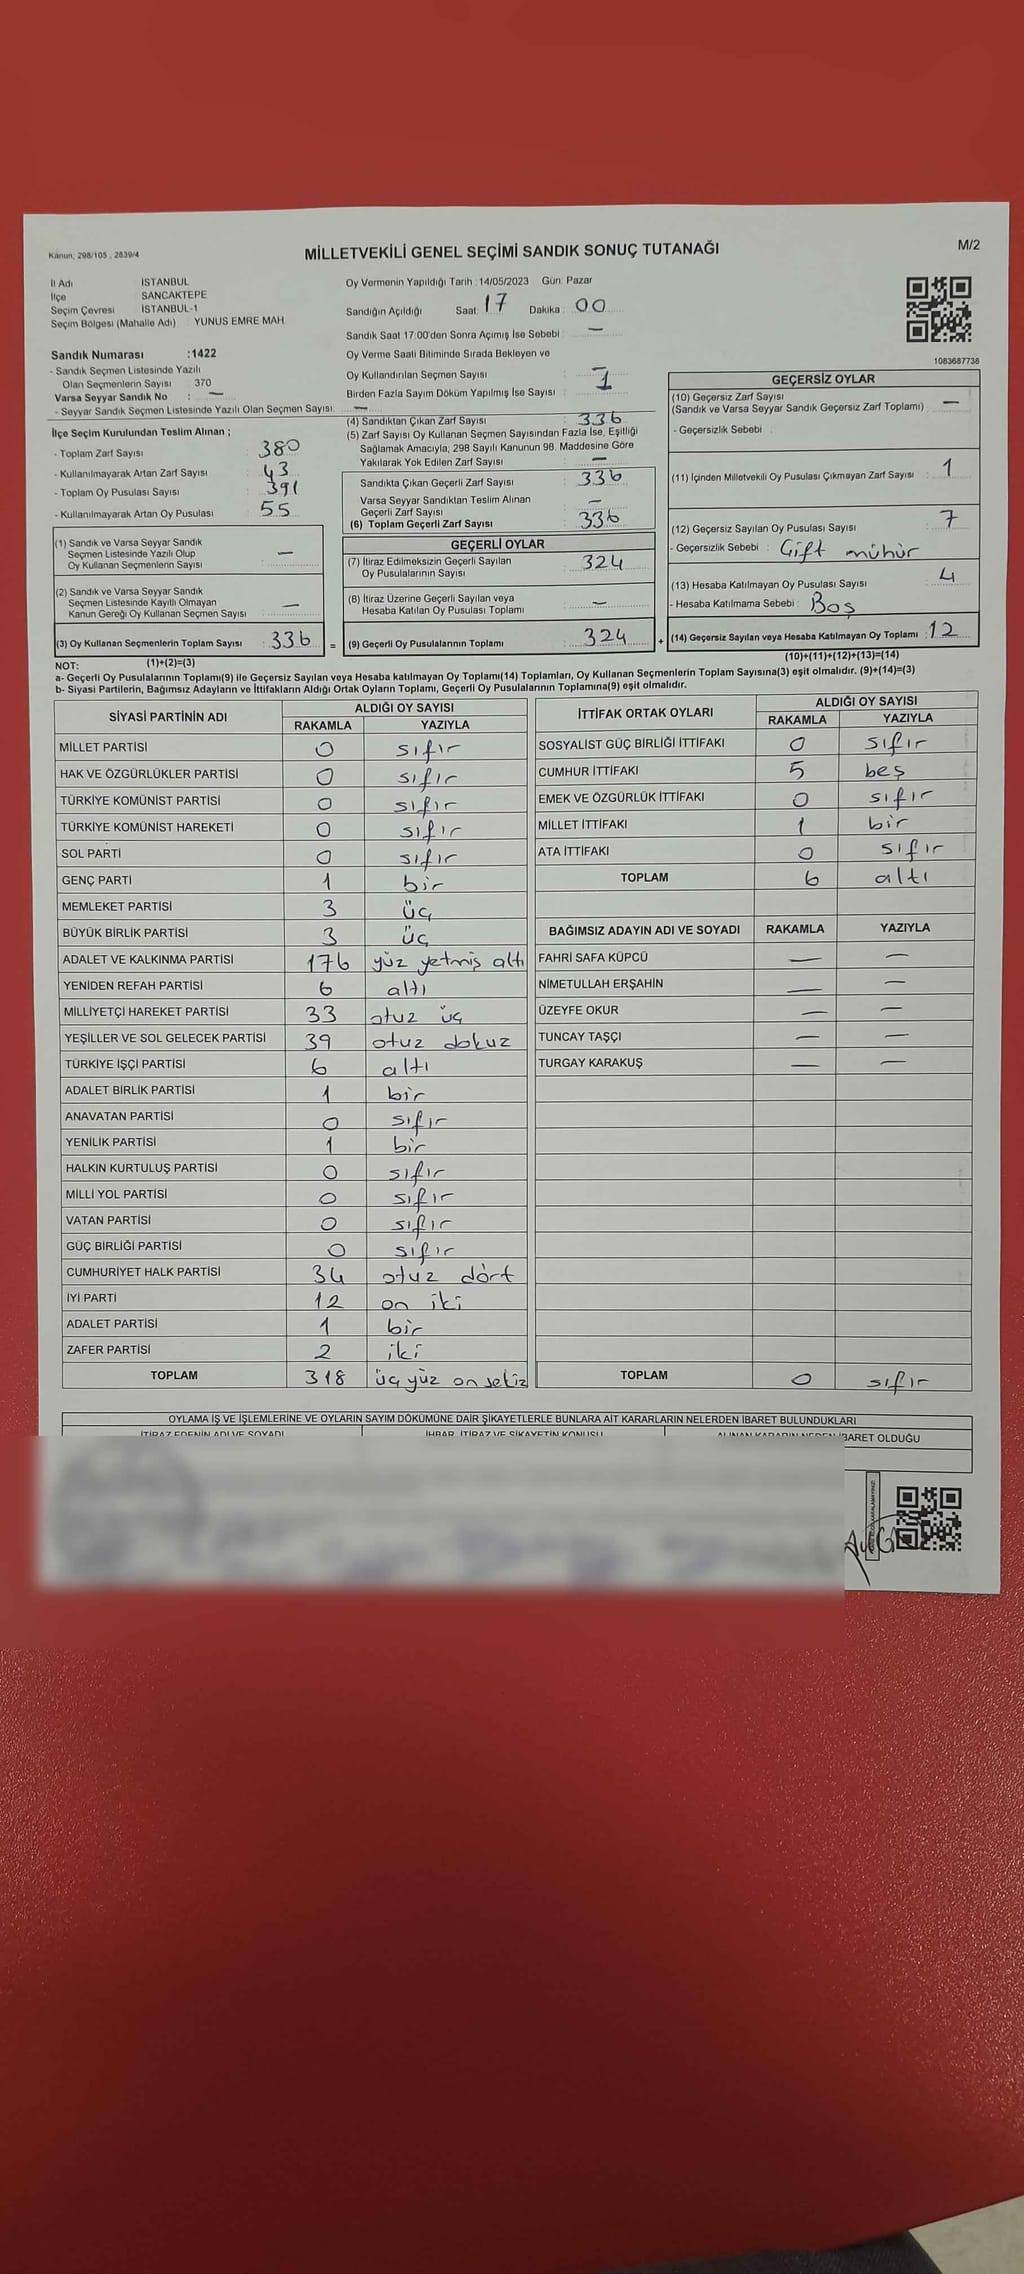 Kanun, 298/105 , 2839/4
MİLLETVEKİLİ GENEL SEÇİMİ SANDIK SONUÇ TUTANAĞI
M/2
İl Adı İSTANBUL
İlçe SANCAKTEPE
Seçim Çevresi İSTANBUL-1
Seçim Bölgesi (Mahalle Adı) : YUNUS EMRE MAH.
Sandık Numarası :1422
- Sandık Seçmen Listesinde Yazılı
Olan Seçmenlerin Sayısı : 370
Varsa Seyyar Sandık No : —
- Seyyar Sandık Seçmen Listesinde Yazılı Olan Seçmen Sayısı: —
Oy Vermenin Yapıldığı Tarih :14/05/2023 Gün: Pazar
Sandığın Açıldığı Saat: 17 Dakika : 00
Sandık Saat 17:00'den Sonra Açımış İse Sebebi : —
Oy Verme Saati Bitiminde Sırada Bekleyen ve
Oy Kullandırılan Seçmen Sayısı : —
Birden Fazla Sayım Döküm Yapılmış İse Sayısı : 1
1083687738
İlçe Seçim Kurulundan Teslim Alınan ;
- Toplam Zarf Sayısı : 380
- Kullanılmayarak Artan Zarf Sayısı : 43
- Toplam Oy Pusulası Sayısı : 391
- Kullanılmayarak Artan Oy Pusulası : 55
(1) Sandık ve Varsa Seyyar Sandık
Seçmen Listesinde Yazılı Olup
Oy Kullanan Seçmenlerin Sayısı : —
(2) Sandık ve Varsa Seyyar Sandık
Seçmen Listesinde Kayıtlı Olmayan
Kanun Gereği Oy Kullanan Seçmen Sayısı : —
(3) Oy Kullanan Seçmenlerin Toplam Sayısı : 336 =
(4) Sandıktan Çıkan Zarf Sayısı : 336
(5) Zarf Sayısı Oy Kullanan Seçmen Sayısından Fazla İse, Eşitliği
Sağlamak Amacıyla, 298 Sayılı Kanunun 98. Maddesine Göre
Yakılarak Yok Edilen Zarf Sayısı : —
Sandıkta Çıkan Geçerli Zarf Sayısı : 336
Varsa Seyyar Sandıktan Teslim Alınan
Geçerli Zarf Sayısı : —
(6) Toplam Geçerli Zarf Sayısı : 336
GEÇERLİ OYLAR
(7) İtiraz Edilmeksizin Geçerli Sayılan
Oy Pusulalarının Sayısı : 324
(8) İtiraz Üzerine Geçerli Sayılan veya
Hesaba Katılan Oy Pusulası Toplamı : —
(9) Geçerli Oy Pusulalarının Toplamı : 324 +
GEÇERSİZ OYLAR
(10) Geçersiz Zarf Sayısı
(Sandık ve Varsa Seyyar Sandık Geçersiz Zarf Toplamı) : —
- Geçersizlik Sebebi :
(11) İçinden Milletvekili Oy Pusulası Çıkmayan Zarf Sayısı : 1
(12) Geçersiz Sayılan Oy Pusulası Sayısı : 7
- Geçersizlik Sebebi : Çift mühür
(13) Hesaba Katılmayan Oy Pusulası Sayısı : 4
- Hesaba Katılmama Sebebi : Boş
(14) Geçersiz Sayılan veya Hesaba Katılmayan Oy Toplamı : 12
NOT: (1)+(2)=(3)
(10)+(11)+(12)+(13)=(14)
a- Geçerli Oy Pusulalarının Toplamı(9) ile Geçersiz Sayılan veya Hesaba katılmayan Oy Toplamı(14) Toplamları, Oy Kullanan Seçmenlerin Toplam Sayısına(3) eşit olmalıdır. (9)+(14)=(3)
b- Siyasi Partilerin, Bağımsız Adayların ve İttifakların Aldığı Ortak Oyların Toplamı, Geçerli Oy Pusulalarının Toplamına(9) eşit olmalıdır.
SİYASİ PARTİNİN ADI ALDIĞI OY SAYISI
RAKAMLA YAZIYLA
MİLLET PARTİSİ 0 sıfır
HAK VE ÖZGÜRLÜKLER PARTİSİ 0 sıfır
TÜRKİYE KOMÜNİST PARTİSİ 0 sıfır
TÜRKİYE KOMÜNİST HAREKETİ 0 sıfır
SOL PARTİ 0 sıfır
GENÇ PARTİ 1 bir
MEMLEKET PARTİSİ 3 üç
BÜYÜK BİRLİK PARTİSİ 3 üç
ADALET VE KALKINMA PARTİSİ 176 yüz yetmiş altı
YENİDEN REFAH PARTİSİ 6 altı
MİLLİYETÇİ HAREKET PARTİSİ 33 otuz üç
YEŞİLLER VE SOL GELECEK PARTİSİ 39 otuz dokuz
TÜRKİYE İŞÇİ PARTİSİ 6 altı
ADALET BİRLİK PARTİSİ 1 bir
ANAVATAN PARTİSİ 0 sıfır
YENİLİK PARTİSİ 1 bir
HALKIN KURTULUŞ PARTİSİ 0 sıfır
MİLLİ YOL PARTİSİ 0 sıfır
VATAN PARTİSİ 0 sıfır
GÜÇ BİRLİĞİ PARTİSİ 0 sıfır
CUMHURİYET HALK PARTİSİ 34 otuz dört
İYİ PARTİ 12 on iki
ADALET PARTİSİ 1 bir
ZAFER PARTİSİ 2 iki
TOPLAM 318 üç yüz on sekiz
İTTİFAK ORTAK OYLARI ALDIĞI OY SAYISI
RAKAMLA YAZIYLA
SOSYALİST GÜÇ BİRLİĞİ İTTİFAKI 0 sıfır
CUMHUR İTTİFAKI 5 beş
EMEK VE ÖZGÜRLÜK İTTİFAKI 0 sıfır
MİLLET İTTİFAKI 1 bir
ATA İTTİFAKI 0 sıfır
TOPLAM 6 altı
BAĞIMSIZ ADAYIN ADI VE SOYADI RAKAMLA YAZIYLA
FAHRİ SAFA KÜPCÜ — —
NİMETULLAH ERŞAHİN — —
ÜZEYFE OKUR — —
TUNCAY TAŞÇI — —
TURGAY KARAKUŞ — —
TOPLAM 0 sıfır
OYLAMA İŞ VE İŞLEMLERİNE VE OYLARIN SAYIM DÖKÜMÜNE DAİR ŞİKAYETLERLE BUNLARA AİT KARARLARIN NELERDEN İBARET BULUNDUKLARI
İTİRAZ EDENİN ADI VE SOYADI İHBAR, İTİRAZ VE ŞİKAYETİN KONUSU ALINAN KARARIN NEDEN İBARET OLDUĞU